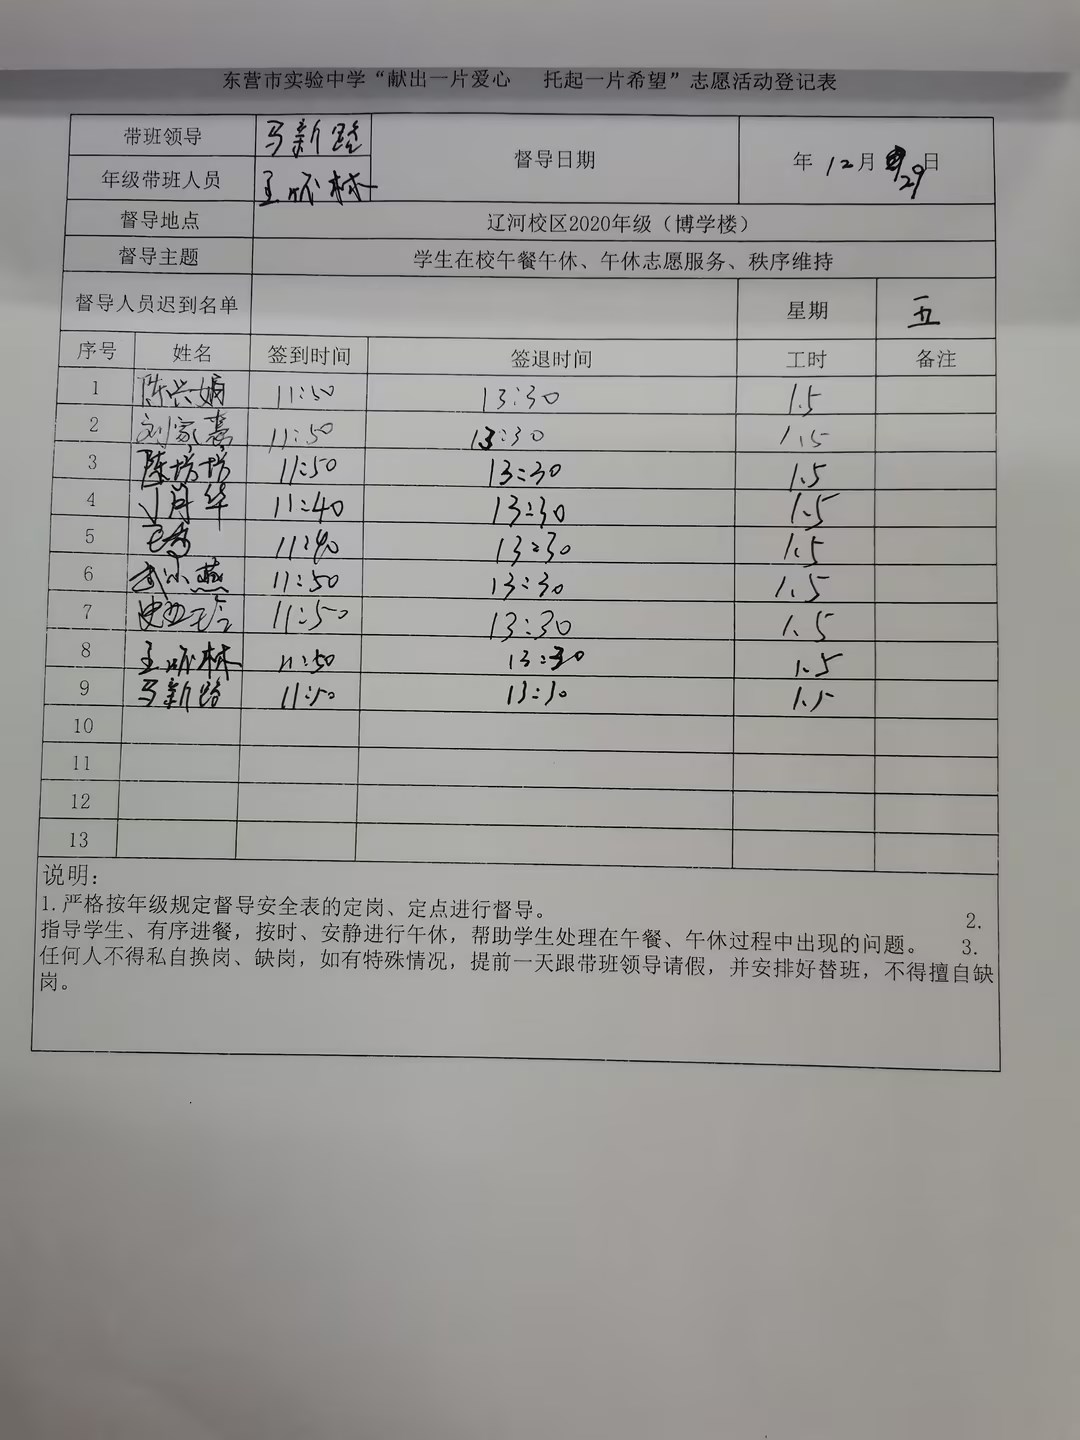 东营市实验中学“献出一片爱心 托起一片希望”志愿活动登记表
带班领导 马新路 督导日期 年 12月 29日
年级带班人员 王怀林
督导地点 辽河校区2020年级（博学楼）
督导主题 学生在校午餐午休、午休志愿服务、秩序维持
督导人员迟到名单 星期 五
序号 姓名 签到时间 签退时间 工时 备注
1 陈兴娟 11:50 13:30 1.5
2 刘家嵩 11:50 13:30 1.5
3 陈培培 11:50 13:30 1.5
4 丁月华 11:40 13:30 1.5
5 11:40 13:30 1.5
6 武小燕 11:50 13:30 1.5
7 11:50 13:30 1.5
8 王怀林 11:50 13:30 1.5
9 马新路 11:50 13:30 1.5
10
11
12
13
说明：
1.严格按年级规定督导安全表的定岗、定点进行督导。 2.
指导学生、有序进餐，按时、安静进行午休，帮助学生处理在午餐、午休过程中出现的问题。 3.
任何人不得私自换岗、缺岗，如有特殊情况，提前一天跟带班领导请假，并安排好替班，不得擅自缺
岗。